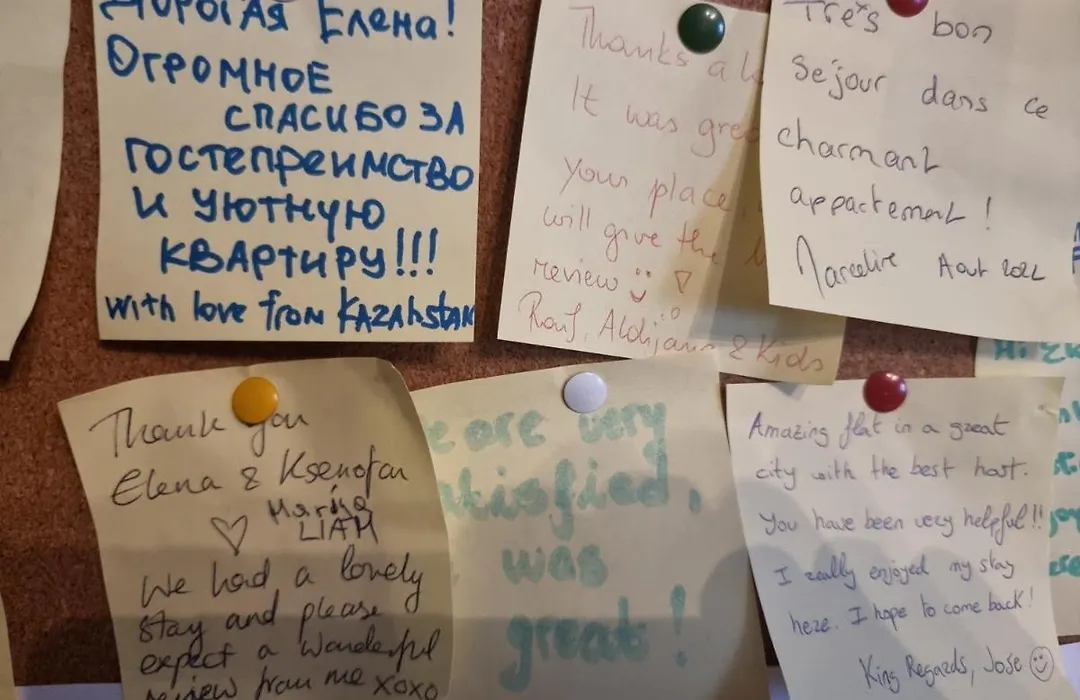 Дорогая Елена!
Огромное
спасибо за
гостепреимство
и уютную
квартиру!!!
with love from Kazahstan
Thanks a
It was
your place
will give the
review
& Kids
Très bon
Séjour dans ce
charmant
appartement !
Août 2022
Thank you
Elena & Ksenofan
Marina
LIAM
We had a lovely
stay and please
expect a wonderful
review from me xoxo
are very
was
great!
Amazing flat in a great
city with the best host.
You have been very helpful!!
I really enjoyed my stay
here. I hope to come back!
King Regards, Jose